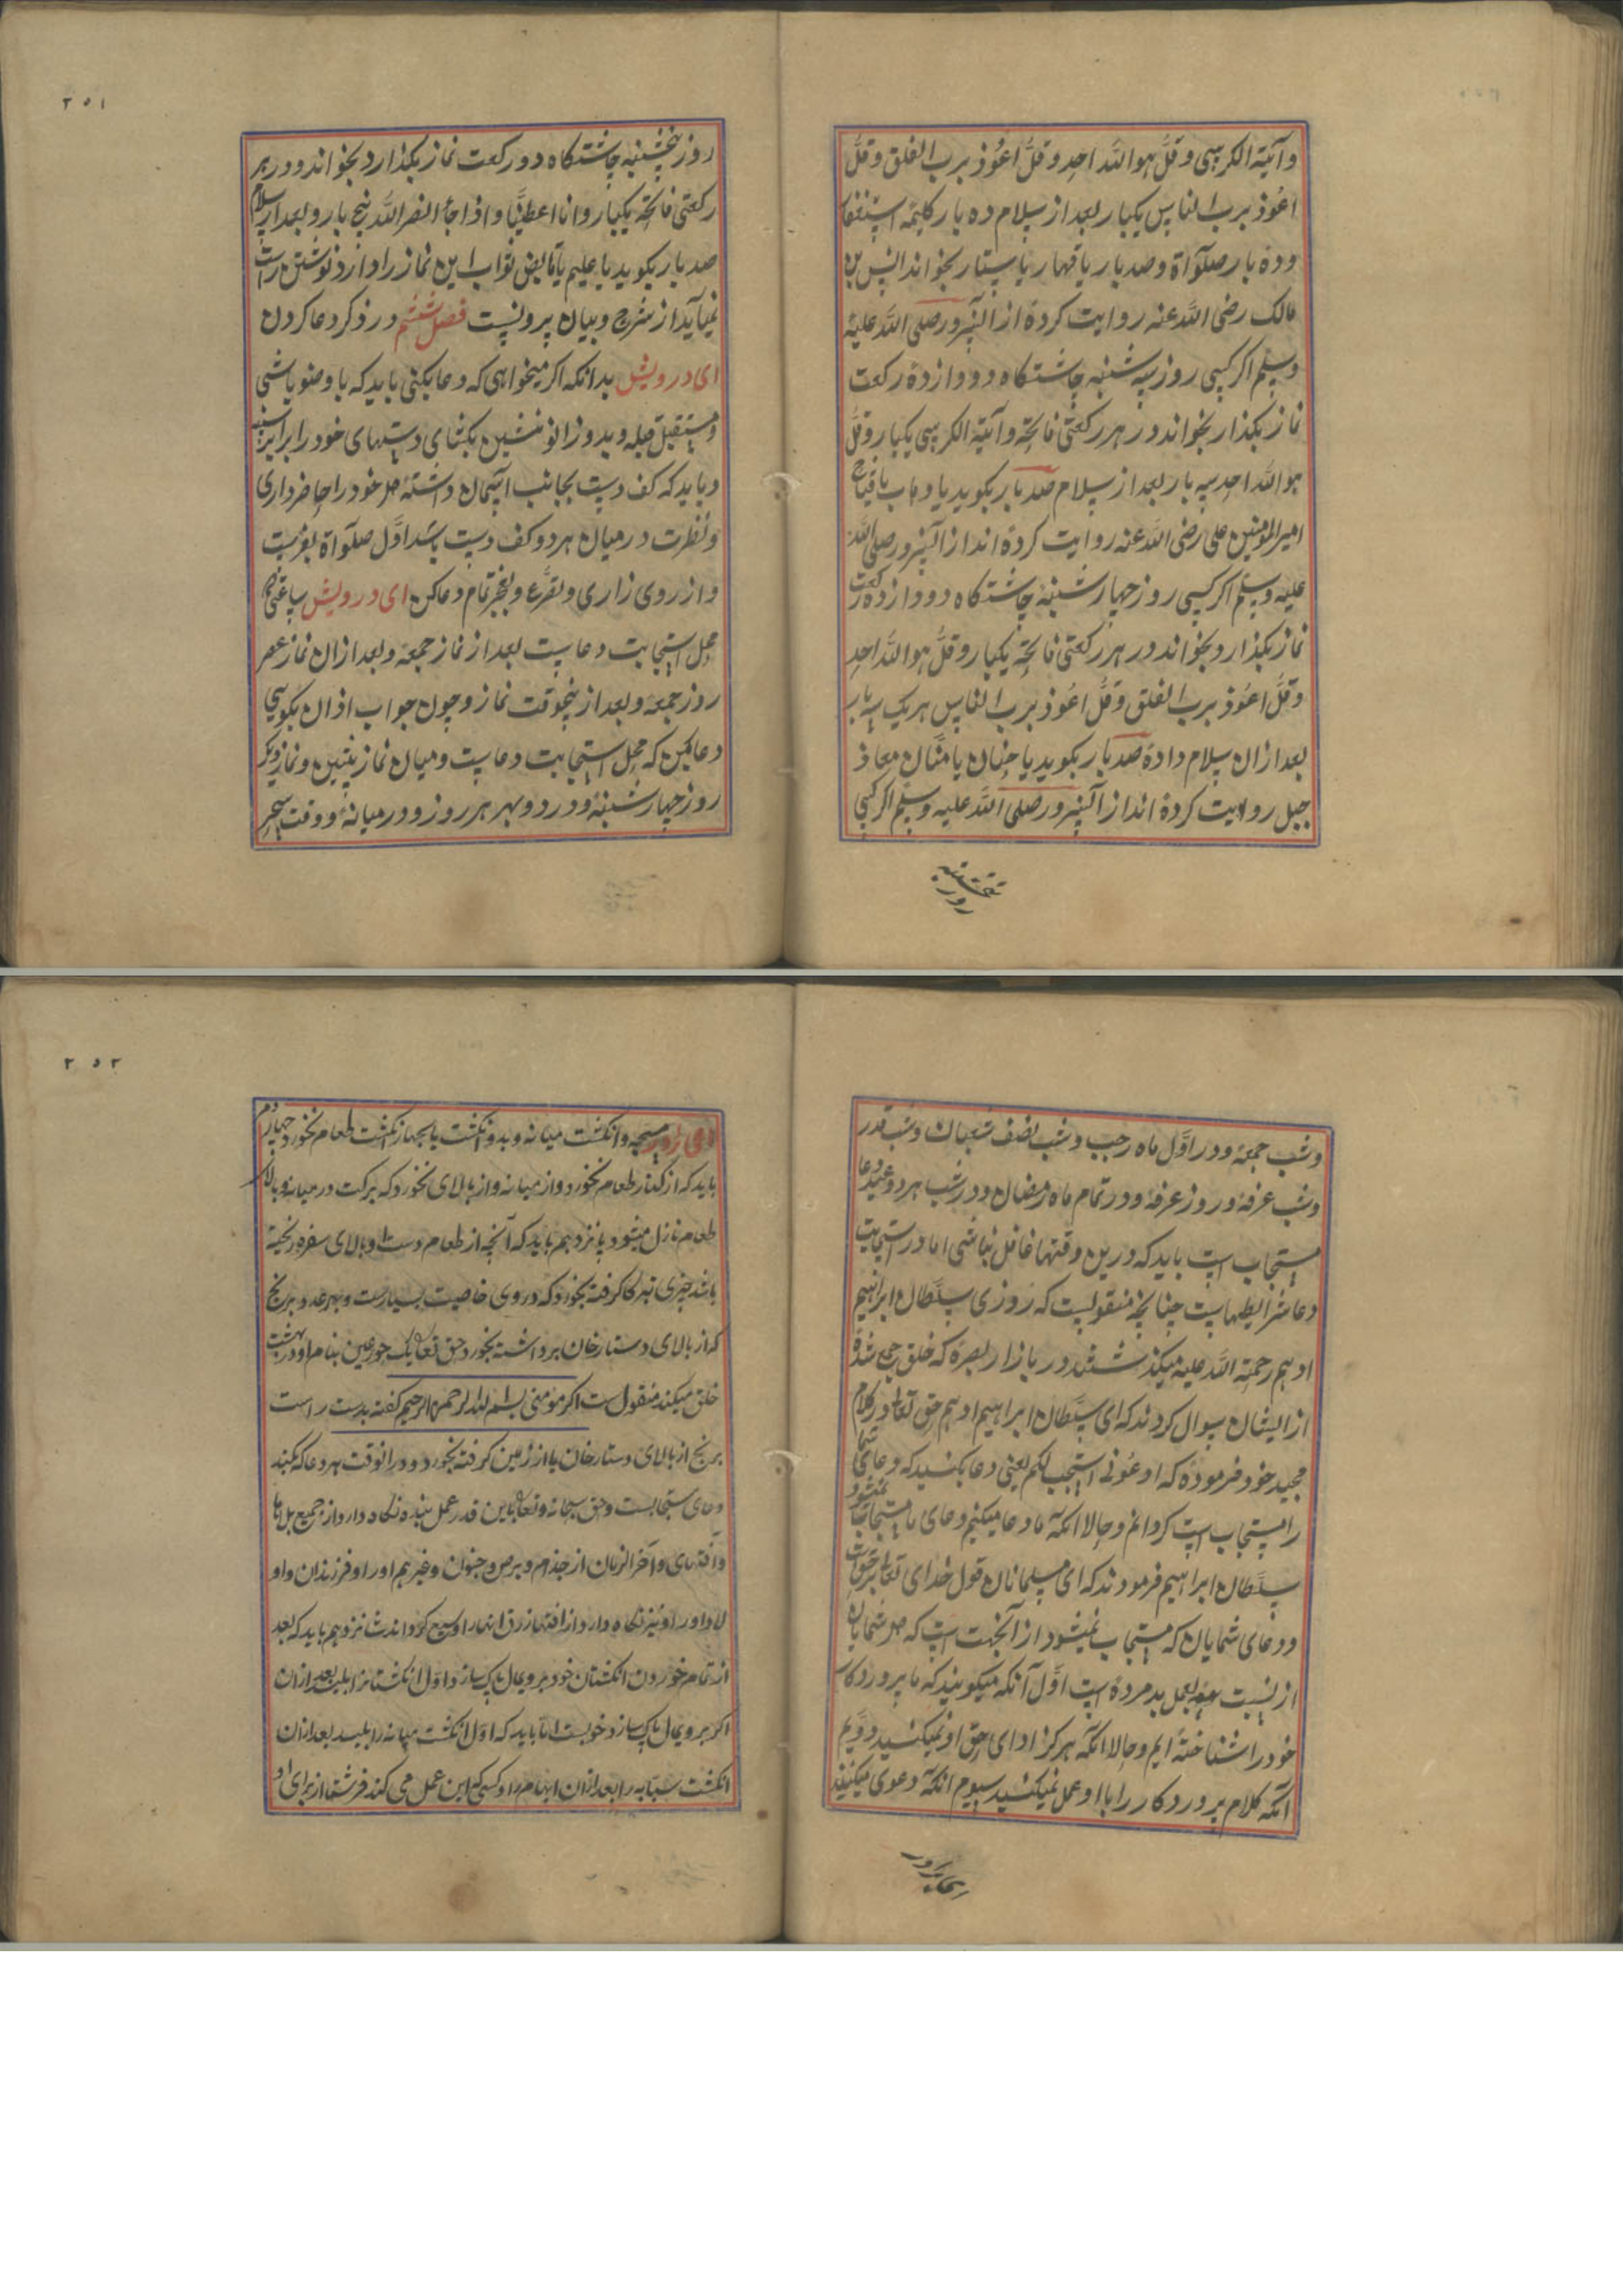 وآیة الکرسی وقل هو الله احد وقل اعوذ برب الفلق وقل
اعوذ برب الناس یکبار بعد از سلام ده بار کلیمه استغفا
وده بار صلواة وصد بار یا قهار یا ستار بخواند انس بن
مالک رضی الله عنه روایت کرده از آنسرور صلی الله علیه
وسلم اکر کسی روز سه شنبه چاشتکاه دو ازده رکعت
نماز بکذار بخواند در هر رکعتی فاتحه وآیة الکرسی یکبار وقل
هو الله احد سه بار بعد از سلام صد بار بکوید یا وهاب یا فتاح
امیر المومنین علی رضی الله عنه روایت کرده اند از آنسرور صلی الله
علیه وسلم اکر کسی روز چهار شنبه چاشتکاه دو ازده رکعت
نماز بکذارد بخواند در هر رکعتی فاتحه یکبار وقل هو الله احد
وقل اعوذ برب الفلق وقل اعوذ برب الناس هر یک سه بار
بعد ازان سلام داده صد بار بکوید یا حنان یا منان معاذ
جبل روایت کرده اند از آنسرور صلی الله علیه وسلم اکر کسی
روز پنجشنبه
۲۵۱
روز پنجشنبه چاشتکاه دو رکعت نماز بکذارد بخواند و در هر
رکعتی فاتحه یکبار وانا اعطینا واذا جاء نصر الله پنج بار و بعد از سلام
صد بار بکوید یا علیم یا قابض ثواب این نماز را دارد نوشتن راست
نمیآید از شرح وبیان برونست فصل ششم در ذکر دعا کردن
ای درویش بدانکه اکر میخواهی که دعا بکنی باید که با وضو باشی
ومستقبل قبله وبدو زانو بنشین بکشای دستهای خود را برابر سینه
وباید که کف دست بجانب آسمان داشته دل خود را حاضر داری
ونظرت در میان هر دو کف دست باشد اول صلواة بفرست
واز روی زاری وتضرع وبعجز تمام دعا کن ای درویش ساعتی که
محل استجابت دعاست بعد از نماز جمعه وبعد ازان نماز عصر
روز جمعه وبعد از پنجوقت نماز وچون جواب اذان بکوسی
دعا بکن که محل استجابت دعاست ومیان نماز پیشین ونماز دیکر
روز چهار شنبه ودر دوپهر هر روز ودر میانه ووقت سحر
وشب جمعه ودر اول ماه رجب وشب نصف شعبان وشب قدر
وشب عرفه وروز عرفه ودر تمام ماه رمضان ودر شب هر دو عید دعا
مستجاب است باید که درین وقتها غافل نباشی اما در استجابت
دعا شرایطهاست چنانچه منقولست که روزی سلطان ابراهیم
ادهم رحمة الله علیه میکذشتند در بازار بصره که خلق جمع شده
از ایشان سوال کردند که ای سلطان ابراهیم ادهم حق تعالی در کلام
مجید خود فرموده که ادعونی استجب لکم یعنی دعا بکنید که دعای شما
را مستجاب است کردانم وحالا انکه ما دعا میکنیم دعای ما مستجاب نمیشود
سلطان ابراهیم فرمودند که ای مسلمانان قول خدای تعالی بر حق است
ودعای شمایان که مستجاب نمیشود از آنجهت است که دل شمایان
از نسبت بعمل بد مرده است اول آنکه میکویند که ما پروردکار
خود را شناخته ایم وحالا انکه هرکز ادای حق او نمیکنید دویم
آنکه کلام پروردکار را با او عمل نمیکنید سیوم انکه دعوی میکنید
۲۵۲
مسبحه وانکشت میانه وبدو انکشت یا چهار انکشت طعام نخورد چهاردهم
باید که از کنار طعام بخورد واز میانه واز بالای نخورد که برکت در میانه وبالای
طعام نازل میشود پانزدهم باید که آنچه از طعام دست او بالای سفره ریخته
باشد چیزی تبرکا کرفته بخورد که دروی خاصیت بسیارست وبهر عدد برنج
که از بالای دستارخان برداشته بخورد حق تعالی یک حورعین بنام او در بهشت
خلق میکند منقول ست اکر مومنی بسم الله الرحمن الرحیم کفته بدست راست
برنج از بالای دستارخان یا از زمین کرفته بخورد ودر انوقت هر دعا که بکند
دعای مستجابست وحق سبحانه وتعالی باین قدر عمل بنده نکاه دارد از جمیع بلاها
وآفتهای وآخر الزمان از جذام وبرص وجنون وغیرهم اورا وفرزندان واو
لاد اورا ونیز نکاه دارد از افتها رزق انهارا وسیع کرداند شانزدهم باید که بعد
از تمام خوردن انکشتان خود برویمال پاک سازد اول انکشتانرا بلیسد بعد ازان
اکر برویمال پاک سازد خوبست اما باید که اول انکشت میانه را بلیسد بعد ازان
انکشت سبابه را بعد ازان ابهام را وکسی که این عمل می کند فرشتها از برای او